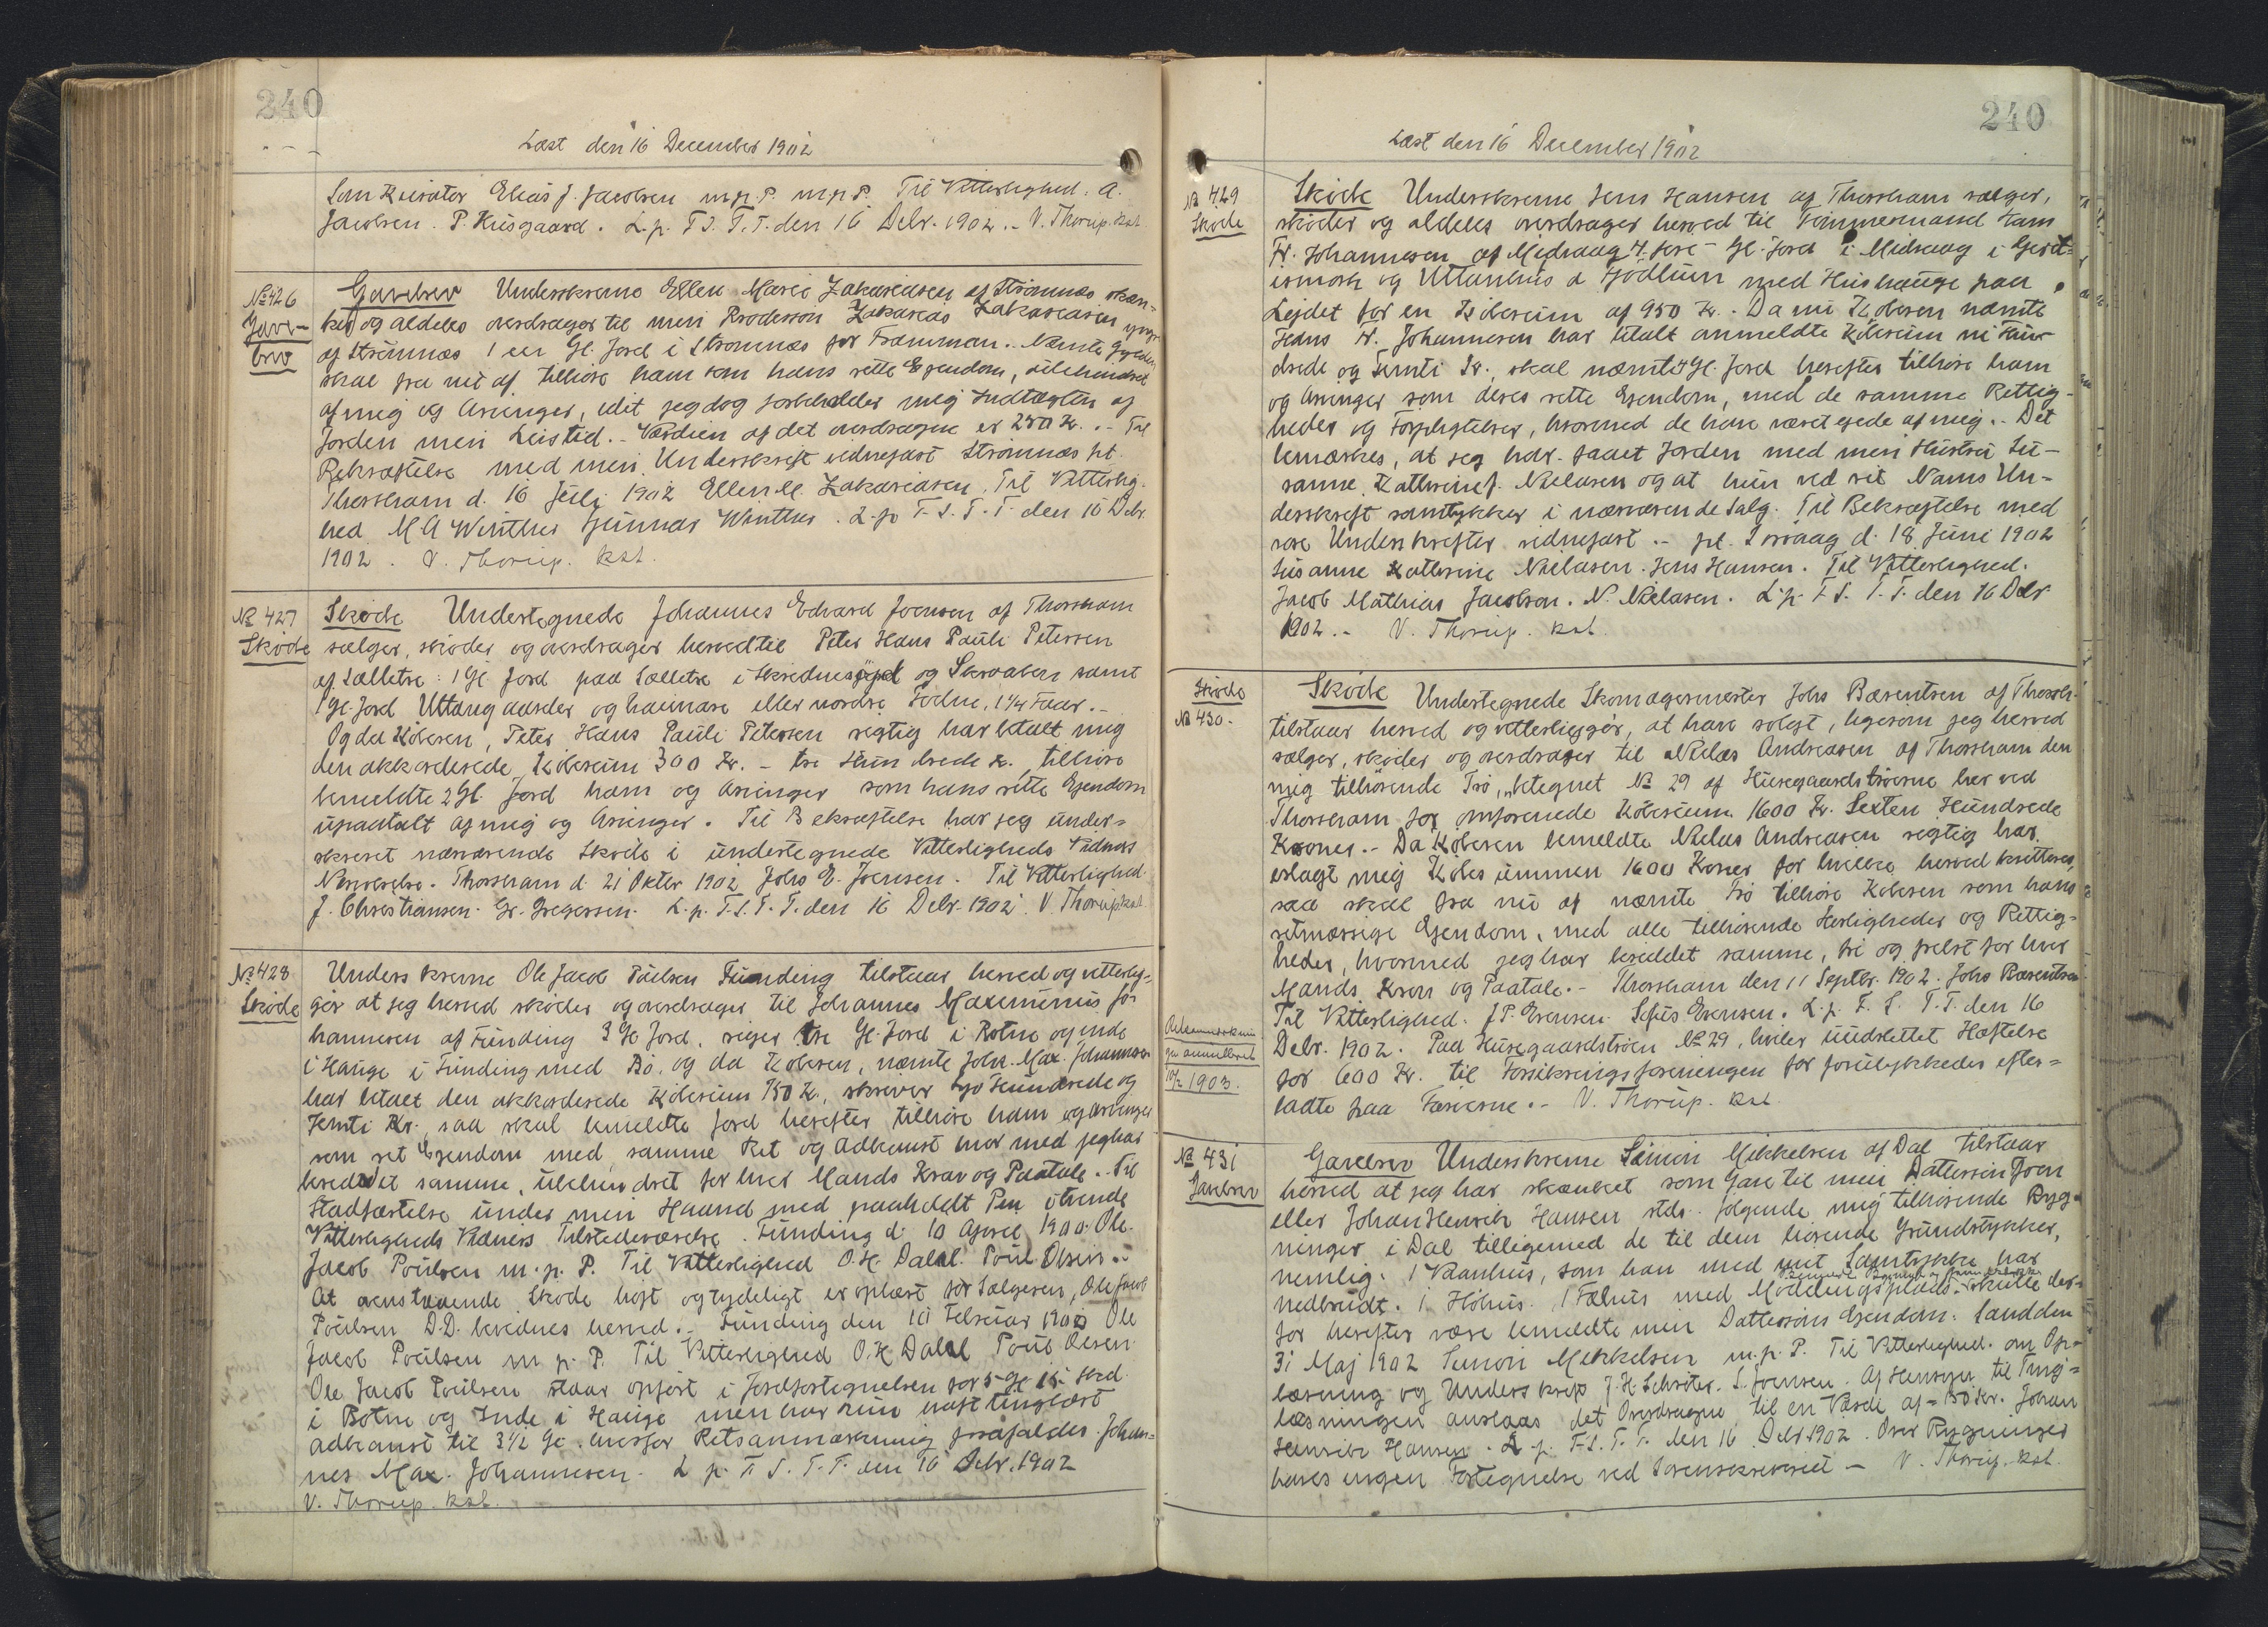 240
Læst den 16 December 1902
Som Kurator Elias J. Jacobsen m.p.P. m.p.P. Til Vitterlighed. A.
Jacobsen. P. Husgaard. L.p. F.S. T.T. den 16 Debr. 1902.- V. Thorup. kst.
No 426
Gave-
brev
Gavebrev Underskrevne Ellen Marie Zakariasen af Strømnæs skæn-
ker og aldeles overdrager til min Brodersøn Zakarias Zakariasen yngr
af Strømnæs 1 een Gl. Jord i Strømnæs for Framman. Nævnte Gylden
skal fra nu af tilhøre ham som hans rette Ejendom, ubehindret
af mig og Arvinger, idet jeg dog forbeholder mig Indtægten af
Jorden min Levetid.- Værdien af det overdragne er 250 Kr. .- Til
Bekræftelse med min Underskrift vidnefast Strømnæs pt.
Thorshavn d. 16 Juli 1902 Ellen M. Zakariasen. Til Vitterlig-
hed M A Winther Gunnar Winther. L.p. F.S. T.T. den 16 Debr.
1902. V. Thorup. kst.
No 427
Skøde
Skøde Undertegnede Johannes Edvard Joensen af Thorshavn
sælger, skøder og overdrager herved til Peter Hans Pauli Petersen
af Sælletræ: 1 Gl Jord paa Sælletræ i og Skraaben samt
1 Gl. Jord Uttang aarder og haimare eller nordre Fodne, 1 1/4 Faar.-
Og da Køberen, Peter Hans Pauli Petersen rigtig har betalt mig
den akkorderede Købesum 300 Kr. - tre Hundrede Kr. tilhøre
bemeldte 2 Gl. Jord ham og Arvinger som hans rette Ejendom
upaatalt af mig og Arvinger. Til Bekræftelse har jeg under-
skrevet nærværende Skøde i undertegnede Vitterligheds Vidners
Nærværelse. Thorshavn d. 21 Oktbr 1902 Johs E. Joensen. Til Vitterlighed
J. Christiansen. Gr. Gregersen. L.p. F.S. T.T. den 16 Debr. 1902. V. Thorup kst
No 428
Skøde
Underskrevne Ole Jacob Poulsen Funding tilstaar herved og vitterlig-
gør at jeg herved skøder og overdrager til Johannes Maximinus Jo-
hannesen af Funding 3 Gl Jord, siger tre Gl. Jord i Botne og inde
i Hauge i Funding med Bø, og da Køberen, nævnte Joh. Max. Johannesen
har betalt den akkorderede Købesum 750 Kr., skriver syv Hundrede og
femti Kr., saa skal bemeldte Jord herefter tilhøre ham og Arvinger
som ret Ejendom med samme Ret og Adkomst hvor med jeg har
besiddet samme, ubehindret for hver Mands Krav og Paatale. Til
Stadfæstelse under min Haand med paaholdt Pen i trende
Vitterligheds Vidners Tilstedeværelse. Funding d: 10 April 1900. Ole
Jacob Poulsen m.p.P. Til Vitterlighed O.H. Dalal. Poul Olsen.-
At ovenstaaende Skøde højt og tydeligt er oplæst for Sælgeren, Ole Jacob
Poulsen D.D. bevidnes herved.- Funding den 10 Februar 1900 Ole
Jacob Poulsen m.p.P. Til Vitterlighed O.H. Dalal Poul Olsen
Ole Jacob Poulsen staar opført i Jordfortegnelsen for 5 Gl Jord
i Botne og Inde i Hauge men har kun haft tinglæst
adkomst til 3 1/2 Gl. hvorfor Retsanmærkning frafalder. Johan-
nes Max. Johannesen. L.p. F.S. T.T. den 16 Debr. 1902
V. Thorup. kst.
240
Læst den 16 December 1902
No 429
Skøde
Skøde Underskrevne Jens Hansen af Thorshavn sælger,
skøder og aldeles overdrager herved til Tømmermand Hans
Fr. Johannesen af Midvaag 4 fire Gl. Jord i Midvaag i Gerit-
ismørk og Uttanhus a Hjødlum med Hushauge paa
Lejdet for en Købesum af 950 Kr. Da nu Køberen nævnte
Hans Fr. Johannesen har betalt anmeldte Købesum ni Hun-
drede og Femti Kr., skal nævnte 4 Gl. Jord herefter tilhøre ham
og Arvinger som deres rette Ejendom, med de samme Rettig-
heder og Forpligtelser, hvormed de have været ejede af mig.- Det
bemærkes, at jeg har faaet Jorden med min Hustru Su-
sanne Kathrine f. Nielasen og at hun ved sit Navns Un-
derskrift samtykker i nærværende Salg. Til Bekræftelse med
vore Underskrifter vidnefast.- pt. Sørvaag d. 18 Juni 1902
Susanne Kathrine Nielasen. Jens Hansen. Til Vitterlighed.
Jacob Mathias Jacobsen. N. Nielasen. L.p. F.S. T.T. den 16 Debr
1902.- V. Thorup. kst.
Skøde
No 430.
Skøde Undertegnede Skomagermester Johs Bærentsen af Thorsh.
tilstaar herved og vitterliggør, at have solgt, ligesom jeg herved
sælger, skøder og overdrager til Nielas Andreasen af Thorshavn den
mig tilhørende Trø, betegnet No 29 af Husegaardstrøerne her ved
Thorshavn for omforenede Købesum 1600 Kr. Sexten Hundrede
Kroner.- Da Køberen bemeldte Nielas Andreasen rigtig har
erlagt mig Købesummen 1600 Kroner for hvilke herved kvitteres,
saa skal fra nu af nævnte Trø tilhøre Køberen som hans
retmæssige Ejendom, med alle tilhørende Herligheder og Rettig-
heder, hvormed jeg har besiddet samme, fri og frelst for hver
Mands Krav og Paatale.- Thorshavn den 11 Septbr. 1902. Johs Bærentsen.
Til Vitterlighed. J.P. Evensen. Sofus Evensen. L.p. F.S. T.T. den 16
Debr. 1902. Paa Husegaardstrøen No 29, hviler uudslettet Hæftelse
for 600 Kr. til Forsikringsforeningen for forulykkedes efter-
ladte paa Færøerne.- V. Thorup. kst.
annulleret
1903.
No 431
Gavebrev
Gavebrev Underskrevne Simon Mikkelsen af Dal tilstaar
herved at jeg har skænket som Gave til min Dattersøn Joen
eller Johan Henrik Hansen stds. følgende mig tilhørende Byg-
ninger i Dal tilligemed de til dem hørende Grundstykker,
nemlig: 1 Vaanhus, som han med mit Samtykke har
nedbrudt. 1 Høhus. 1 Fæhus med Møddingsplads. skulle der-
for herefter være bemeldte min Dattersøns Ejendom. Sand den
31 Maj 1902 Simon Mikkelsen m.p.P. Til Vitterlighed. om Op-
læsning og Underskrift J.H. Schrøter. S. Joensen. Af Hensyn til Ting-
læsningen anslaas det Overdragne til en Værdi af 150 Kr. Johan
Henrik Hansen. L.p. F.S. T.T. den 16 Debr. 1902. Over Bygninger
haves ingen Fortegnelse ved Sorenskriveriet - V. Thorup. kst.